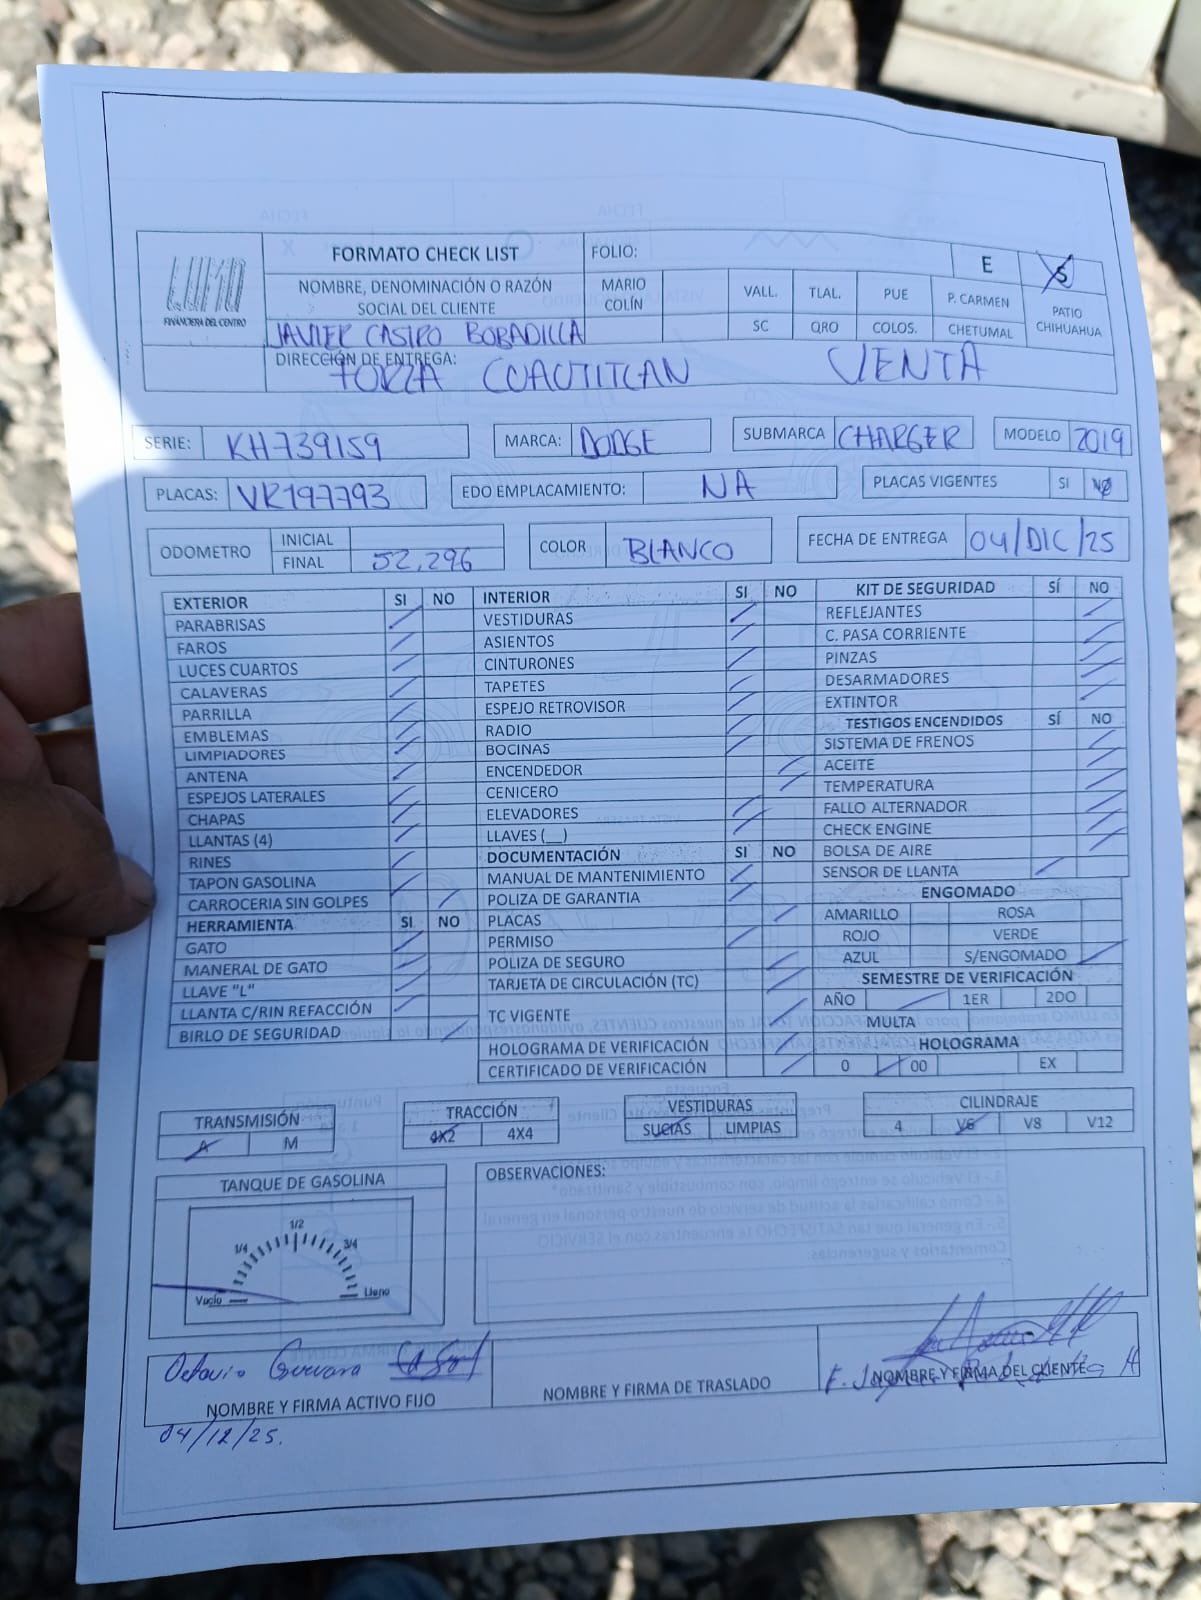 FORMATO CHECK LIST
FOLIO:
E
S
FINANCIERA DEL CENTRO
NOMBRE, DENOMINACIÓN O RAZÓN
SOCIAL DEL CLIENTE
MARIO
COLÍN
VALL.
TLAL.
PUE
P. CARMEN
PATIO
CHIHUAHUA
JAVIER CASTRO BOBADILLA
SC
QRO
COLOS.
CHETUMAL
DIRECCIÓN DE ENTREGA:
FORZA CUAUTITLAN VENTA
SERIE: KH739159
MARCA: DODGE
SUBMARCA CHARGER
MODELO 2019
PLACAS: VR197793
EDO EMPLACAMIENTO: NA
PLACAS VIGENTES SI NO
ODOMETRO
INICIAL
FINAL 52,296
COLOR BLANCO
FECHA DE ENTREGA 04/DIC/25
EXTERIOR SI NO
PARABRISAS
FAROS
LUCES CUARTOS
CALAVERAS
PARRILLA
EMBLEMAS
LIMPIADORES
ANTENA
ESPEJOS LATERALES
CHAPAS
LLANTAS (4)
RINES
TAPON GASOLINA
CARROCERIA SIN GOLPES
HERRAMIENTA SI NO
GATO
MANERAL DE GATO
LLAVE "L"
LLANTA C/RIN REFACCIÓN
BIRLO DE SEGURIDAD
INTERIOR SI NO
VESTIDURAS
ASIENTOS
CINTURONES
TAPETES
ESPEJO RETROVISOR
RADIO
BOCINAS
ENCENDEDOR
CENICERO
ELEVADORES
LLAVES (__)
DOCUMENTACIÓN SI NO
MANUAL DE MANTENIMIENTO
POLIZA DE GARANTIA
PLACAS
PERMISO
POLIZA DE SEGURO
TARJETA DE CIRCULACIÓN (TC)
TC VIGENTE
HOLOGRAMA DE VERIFICACIÓN
CERTIFICADO DE VERIFICACIÓN
KIT DE SEGURIDAD SÍ NO
REFLEJANTES
C. PASA CORRIENTE
PINZAS
DESARMADORES
EXTINTOR
TESTIGOS ENCENDIDOS SÍ NO
SISTEMA DE FRENOS
ACEITE
TEMPERATURA
FALLO ALTERNADOR
CHECK ENGINE
BOLSA DE AIRE
SENSOR DE LLANTA
ENGOMADO
AMARILLO ROSA
ROJO VERDE
AZUL S/ENGOMADO
SEMESTRE DE VERIFICACIÓN
AÑO 1ER 2DO
MULTA
HOLOGRAMA
0 00 EX
TRANSMISIÓN
A M
TRACCIÓN
4X2 4X4
VESTIDURAS
SUCIAS LIMPIAS
CILINDRAJE
4 V6 V8 V12
TANQUE DE GASOLINA
1/4 1/2 3/4
Vacío Lleno
OBSERVACIONES:
Octavio Guevara
NOMBRE Y FIRMA ACTIVO FIJO
NOMBRE Y FIRMA DE TRASLADO
NOMBRE Y FIRMA DEL CLIENTE
04/12/25.